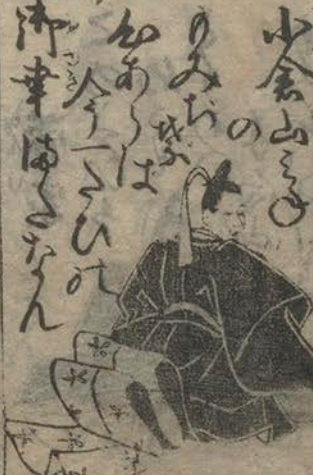 小倉山みね
の
もみぢ葉
心あらば
今一たひの
御幸またなん